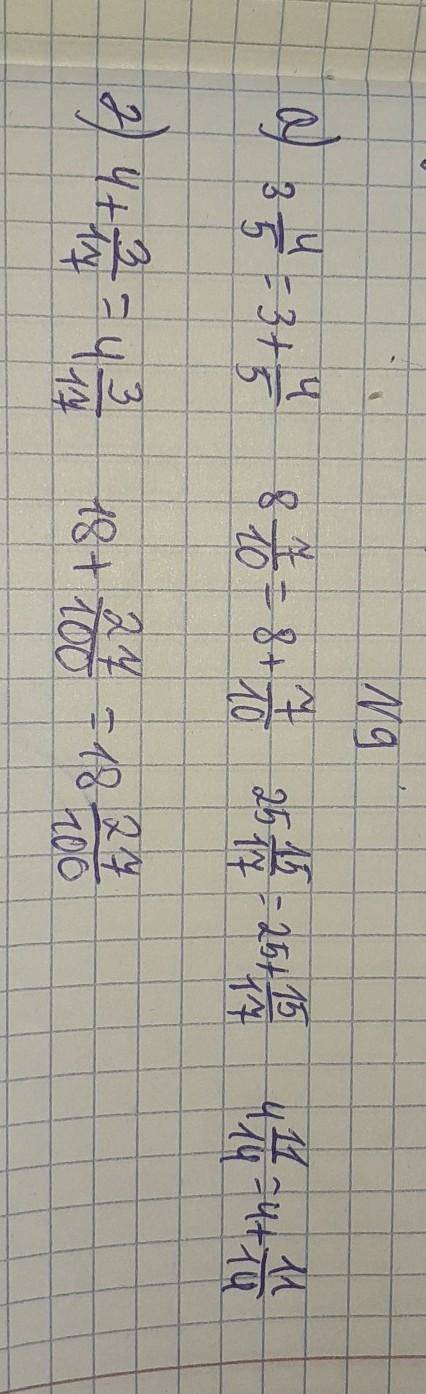 N9
а) 3 4/5 = 3 + 4/5 8 7/10 = 8 + 7/10 25 15/17 = 25 + 15/17 4 11/14 = 4 + 11/14
2) 4 + 3/17 = 4 3/17 18 + 27/100 = 18 27/100